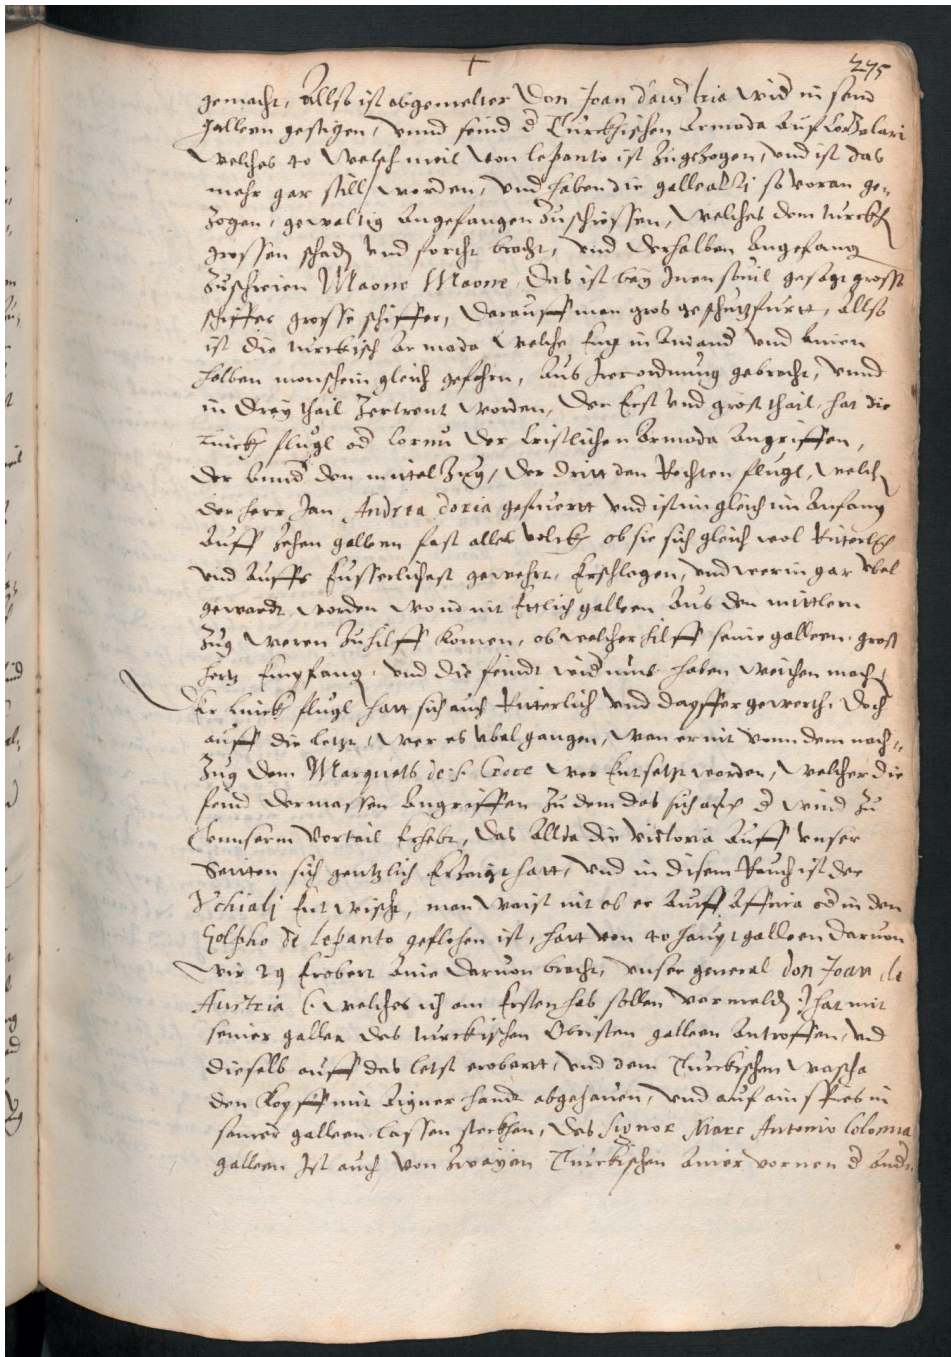 +
275
gemacht, Allso ist abgemelter Don Joan d'austria wid in sein
galleen gestigen, vnnd seind d Turckhischen Armada auf Corzolari
welches 40 welsch meil von lepanto ist zugezogen, vnd ist das
mehr gar still worden, vnd haben die galleazzi so voran ge„
zogen, gewaltig angefangen zuschiessen, welches dem turckh
grossen schad vnd forcht bracht, vnd derhalben angefang
zuschreien Maone Maone, das ist bey Inen souil gesagt grosse
schiffer grosse schiffer, darauff man gros geschutz fuert, allso
ist die turckisch armada welche Eng in ainand vnd ainem
halben monschein gleich gefahrn, aus Irer ordnung gebracht, vnnd
in drey thail zertrent worden, der Erst vnd gröst thail hat die
Linckh flugl od Cornu der Cristlichen Armada angriffen,
der annd den mittel zug, der dritt den Rechten flugl, welch
der herr Jan Andrea Doria gefuertt vnd ist im gleich im anfang
auff zehen galleen fast alles volckh ob sie sich gleich wol Ritterlich
vnd auffs Eusserlichest gewehrt, Erschlagen, vnd wer im gar vbel
gewardt worden wo nit Ettlich galleen aus dem mittlern
zug weren zuhilff komen, ob welcher hilff seine galleen gross
hertz Empfang, vnd die feindt widumb haben weichen mach
Der Linckh flugl hatt sich auch Ritterlich vnd dapffer gewerth, doch
auff die letzt wer es vbel gangen, wan er nit vonn dem nach„
zug dem Marquets de S. Croce wer Entsetzt worden, welcher die
feind dermassen angriffen zu dem das sich auch d wind zu
vnnserm vortail Erhebt, das allda die victoria auff vnser
Seitten sich gentzlich Erzaigt hatt, vnd in disem Rauch ist der
Vchialj Entwischt, man waist nit ob er auff Affrica od in den
Golpho de Lepanto geflohen ist, hatt von 40 haupt galleen daruon
wir 29 Erobert aine daruon bracht, vnser general don Joan de
Austria (: welches ich am Ersten hab sollen vermeld :) hat mit
seiner gallea des turckischen Obristen galleen antroffen, vnd
dieselb auff das letst eroberrt, vnd dem Turckischen wascha
den kopff mit aigner handt abgehauen, vnd auf ain spies in
seiner galleen lassen steckhen, des Signor Marc Antonio Colonna
galleen Ist auch von zwayen Turckischen ainer vornen d and„